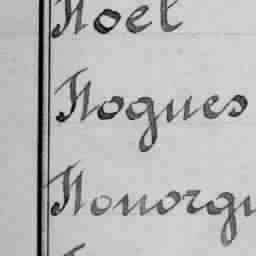 Noel
Nogues
Nonorgu